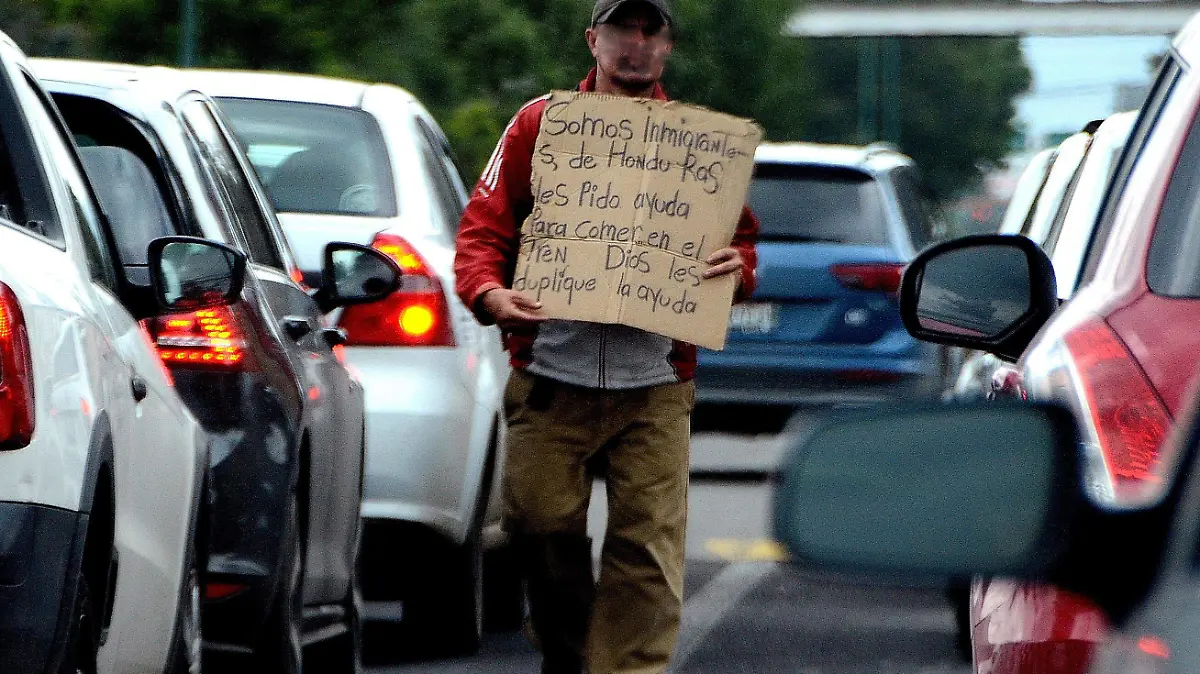 Somos Inmigrante-
s, de Hondu-RaS
les Pido ayuda
Para comer, en el
TREN Dios les
duplique la ayuda